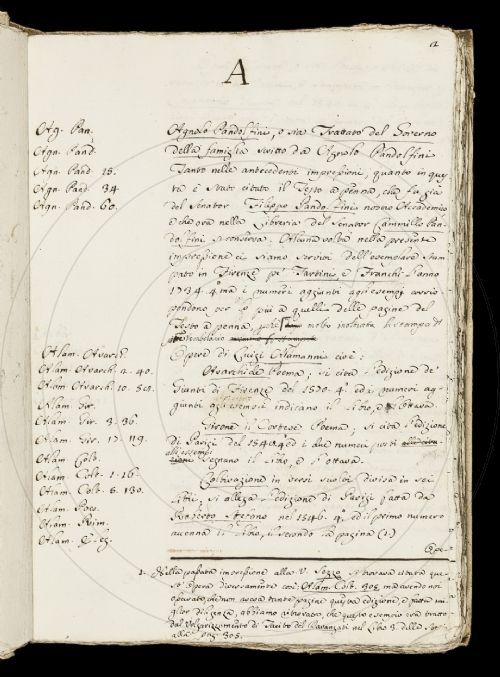 12
A
Agn. Pan.
Agn. Pand.
Agn. Pand. 15.
Agn. Pand. 34
Agn. Pand. 60.
Agnolo Pandolfini, o sia Trattato del Governo
della famiglia scritto da Agnolo Pandolfini
Tanto nelle antecedenti impressioni, quanto in ques
ta è stato citato il Testo a penna, che fu già
del Senator Filippo Pandolfini nostro Accademico
e che ora nella Libreria del Senator Cammillo Pan
dolfini si conserva. Alcuna volta nella presente
impressione ci siamo serviti dell'esemplare stam
pato in Firenze pe' Tartini, e Franchi l'anno
1734. 4.° ma i numeri aggiunti agli esempi corris
pondono per lo più a quelli delle pagine del
Testo a penna, molto inoltrata la stampa di
Alam. Avarch.
Alam. Avarch. 2. 40.
Alam. Avarch. 10. 54.
Alam. Gir.
Alam. Gir. 3. 36.
Alam. Gir. 17. 119.
Alam. Colt.
Alam. Colt. 1. 16.
Alam. Colt. 5. 130.
Alam.
Alam. Rim.
Alam.
Opere di Luigi Alamanni cioè:
Avarchide Poema; si cita l'edizione de'
Giunti di Firenze del 1570. 4.° ed i numeri ag
giunti agli esempi indicano il libro, e l'ottava.
Girone il Cortese Poema; si cita l'edizione
di Parigi del 1548. 4.° ed i due numeri posti
agli esempi segnano il libro, e l'ottava.
Coltivazione in versi sciolti divisa in sei
libri; si allega l'edizione di Parigi fatta da
Ruberto Stefano nel 1546. 4.° ed il primo numero
accenna il libro, il secondo la pagina (1)
Ope-
1. Nella passata impressione alla V. Sozzo si trovava citata ques
t'opera diversamente così: Alam. Colt. 305. ma avendo noi
osservato, che non aveva tante pagine questa edizione, e fatta mi
glior diligenza, abbiamo ritrovato, che questo esempio era tratto
dal Volgarizzamento di Tacito del Davanzati nel Libro 3. delle Sto
alla pag. 305.